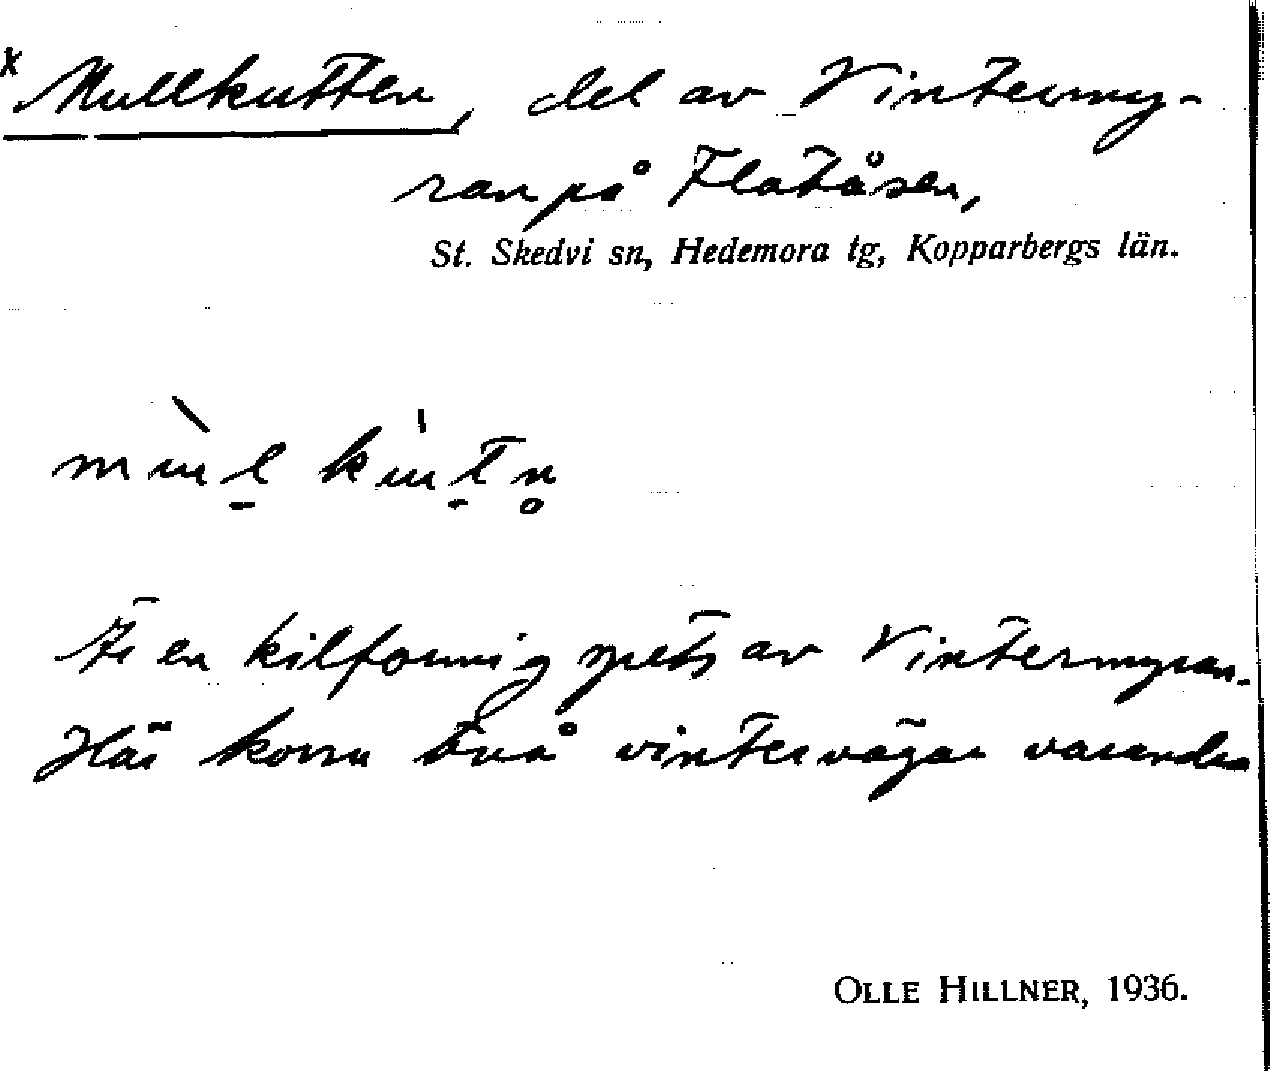 x Mullkutten, del av Vintermy-
ran på Flatåsen,
St. Skedvi sn, Hedemora tg, Kopparbergs län.
Är en kilformig spets av Vintermyran.
Här komma två vintervägar varandra
OLLE HILLNER, 1936.